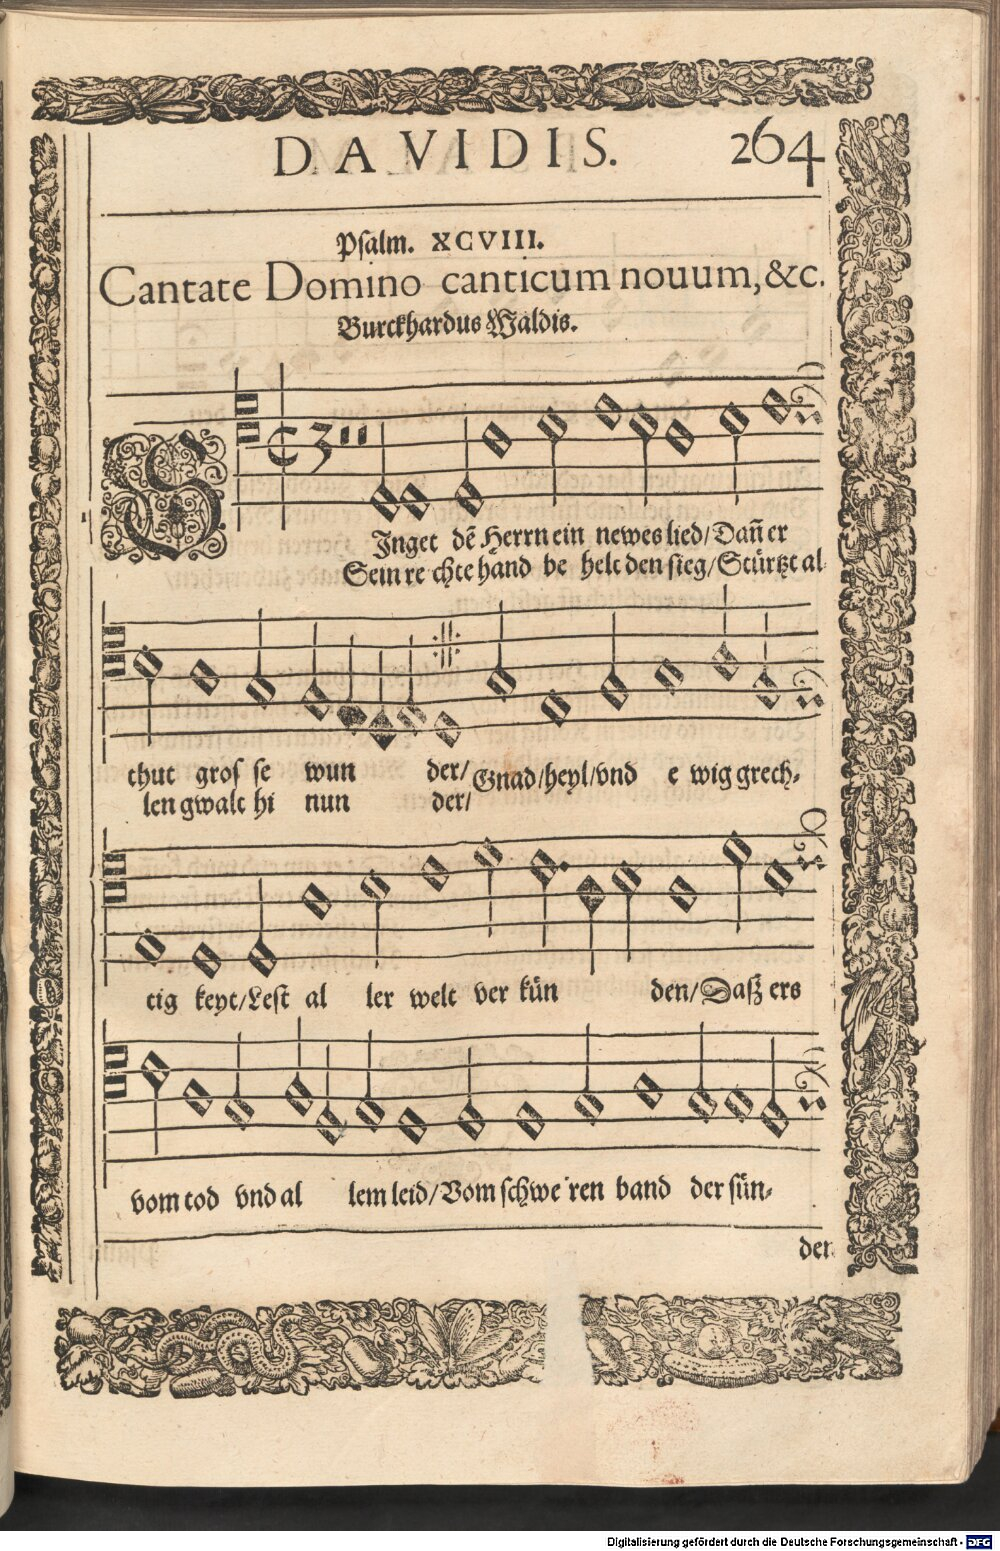 DAVIDIS. 264
Psalm. XCVIII.
Cantate Domino canticum nouum, &c.
Burckhardus Waldis.
SInget dē Herrn ein newes lied/ Dañ er
Sein re chte hand be helt den sieg/ Stürtzt al
thut gros se wun der/ Gnad/ heyl/ vnd e wig grech-
len gwalt hi nun der/
tig keyt/ Lest al ler welt ver kün den/ Dasz ers
vom tod vnd al lem leid/ Vom schwe ren band der sün-
den
Digitalisierung gefördert durch die Deutsche Forschungsgemeinschaft - DFG